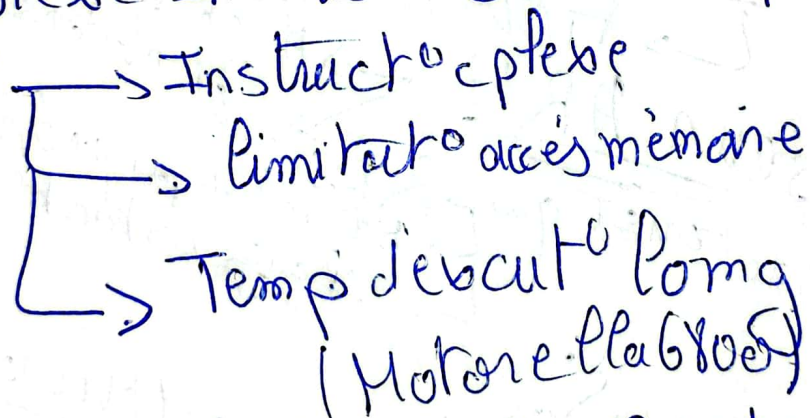 Instruct° cplexe
limitat° accés mémoire
Temp d'excut° long
(Motorella 6805)